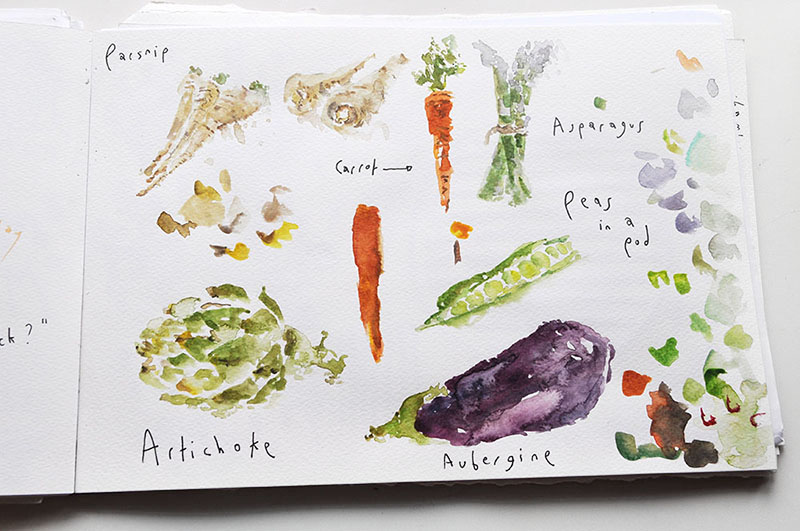 Parsnip
Carrot
Asparagus
Peas
in a
pod
ck?"
Artichoke
Aubergine